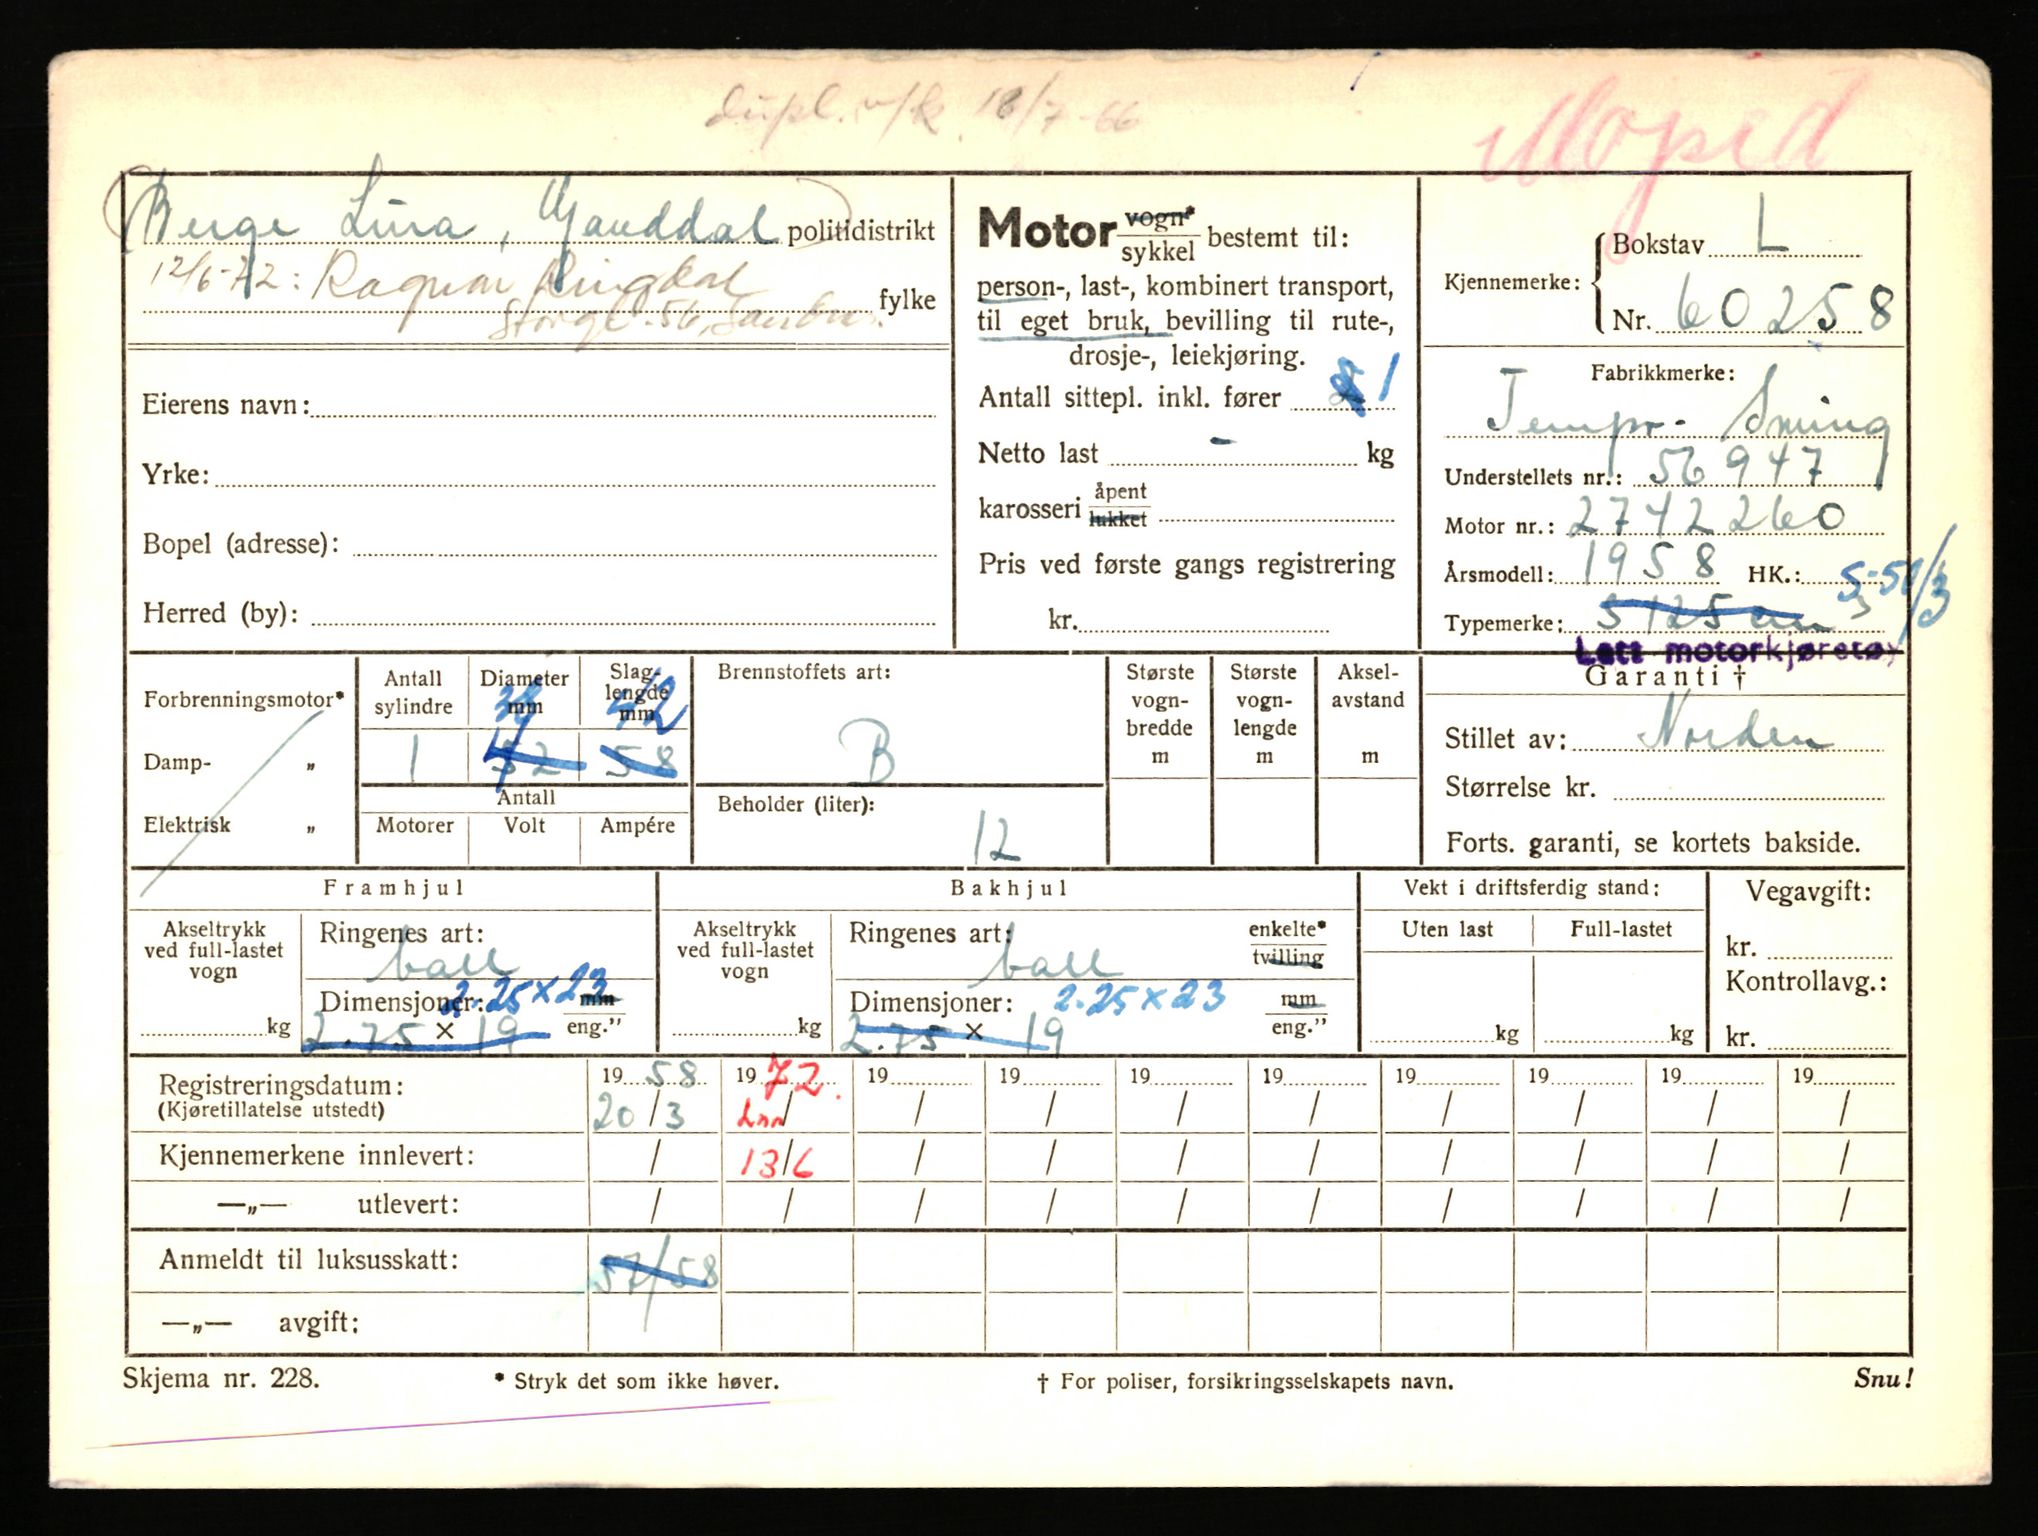 dupl. v/k. 18/7-66
Moped
Berge Lura, Ganddal politidistrikt
12/6-72: Ragnar Ringdal
Storgt. 56, Sandnes. fylke
Eierens navn:
Yrke:
Bopel (adresse):
Herred (by):
Motor vogn* sykkel bestemt til:
person-, last-, kombinert transport,
til eget bruk, bevilling til rute-,
drosje-, leiekjøring.
Antall sittepl. inkl. fører 1
Netto last - kg
karosseri åpent lukket
Pris ved første gangs registrering
kr.
Kjennemerke: Bokstav L
Nr. 60258
Fabrikkmerke:
Tempo-
Understellets nr.: 56947
Motor nr.: 2742260
Årsmodell: 1958 HK.:
Typemerke: S 125
Lett motorkjøretøy
Forbrenningsmotor*
Damp- „
Elektrisk „
Antall sylindre
1
Diameter mm
38
52
Slag-lengde mm
42
58
Antall
Motorer Volt Ampére
Brennstoffets art:
B
Beholder (liter):
12
Største vogn-bredde m
Største vogn-lengde m
Aksel-avstand m
Garanti †
Stillet av: Norden
Størrelse kr.
Forts. garanti, se kortets bakside.
Framhjul
Akseltrykk ved full-lastet vogn
kg
Ringenes art:
ball
Dimensjoner: 2.25 x 23 mm
2.75 x 19 eng."
Bakhjul
Akseltrykk ved full-lastet vogn
kg
Ringenes art: enkelte*
ball tvilling
Dimensjoner: 2.25 x 23 mm
2.75 x 19 eng."
Vekt i driftsferdig stand:
Uten last Full-lastet
kg kg
Vegavgift:
kr.
Kontrollavg.:
kr.
Registreringsdatum: 19 58 19 72. 19 19 19 19 19 19 19 19
(Kjøretillatelse utstedt) 20/3 / / / / / / / / /
Kjennemerkene innlevert: / 13/6 / / / / / / / /
—„— utlevert: / / / / / / / / / /
Anmeldt til luksusskatt: 57/58
—„— avgift:
Skjema nr. 228.
* Stryk det som ikke høver.
† For poliser, forsikringsselskapets navn.
Snu!